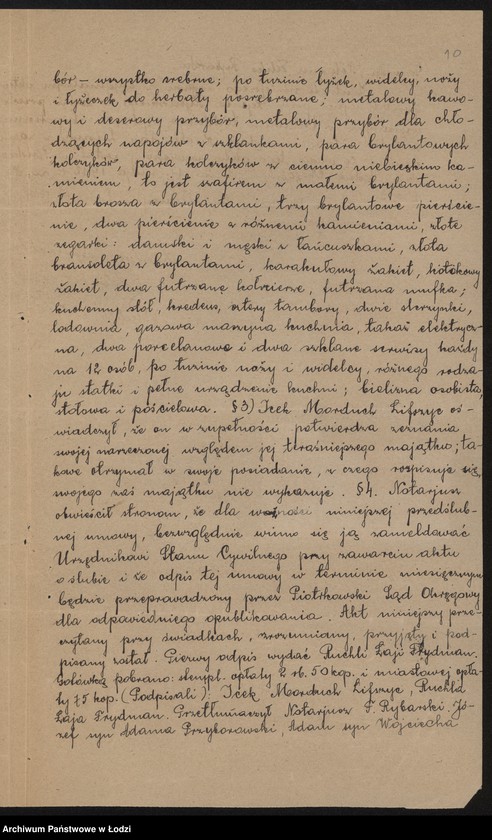 10
bór – wszystko srebrne; po tuzinie łyżek, widelcy, noży
i łyżeczek do herbaty posrebrzane; metalowy kawo-
wy i deserowy przybór, metalowy przybór dla chło-
dzących napojów z szklankami, para brylantowych
kolczyków, para kolczyków z ciemno niebieskim ka-
mieniem, to jest szafirem z małemi brylantami;
złota brosza z brylantami, trzy brylantowe pierście-
nie, dwa pierścienie z różnemi kamieniami, złote
zegarki: damski i męski z łańcuszkami, złota
bransoleta z brylantami, karakułowy żakiet, kotikowy
żakiet, dwa futrzane kołnierze, futrzana mufka;
kuchenny stół, kredens, cztery tambory, dwie skrzynki,
lodownia, gazowa maszyna kuchnia, takaż elektrycz-
na, dwa porcelanowe i dwa szklane serwisy każdy
na 12 osób, po tuzinie noży i widelcy, różnego rodza-
ju statki i pełne urządzenie kuchni; bielizna osobista,
stołowa i pościelowa. § 3) Icek Morduch Lifszyc oś-
wiadczył, że on w zupełności potwierdza zeznania
swojej narzeczonej względem jej teraźniejszego majątku; ta-
kowe otrzymał w swoje posiadanie, z czego rozpisuje się,
swojego zaś majątku nie wykazuje. § 4. Notarjusz
obwieścił stronom, że dla ważności niniejszej przedślub-
nej umowy, bezwzględnie winno się ją zameldować
Urzędnikowi Stanu Cywilnego przy zawarciu aktu
o ślubie i że odpis tej umowy w terminie miesięcznym
będzie przeprowadzony przez Piotrkowski Sąd Okręgowy
dla odpowiedniego opublikowania. Akt niniejszy prze-
czytany przy świadkach, zrozumiany, przyjęty i pod-
pisany został. Pierwy odpis wydać Ruchli Łaji Frydman.
Gotówką pobrano: stempl. opłaty 2 rb. 50 kop. i miastowej opła-
ty 75 kop. (Podpisali): Icek Morduch Lifszyc, Ruchla
Łaja Frydman. Przetłumaczył Notarjusz F. Rybarski. Jó-
zef syn Adama Przyborowski, Adam syn Wojciecha
Archiwum Państwowe w Łodzi